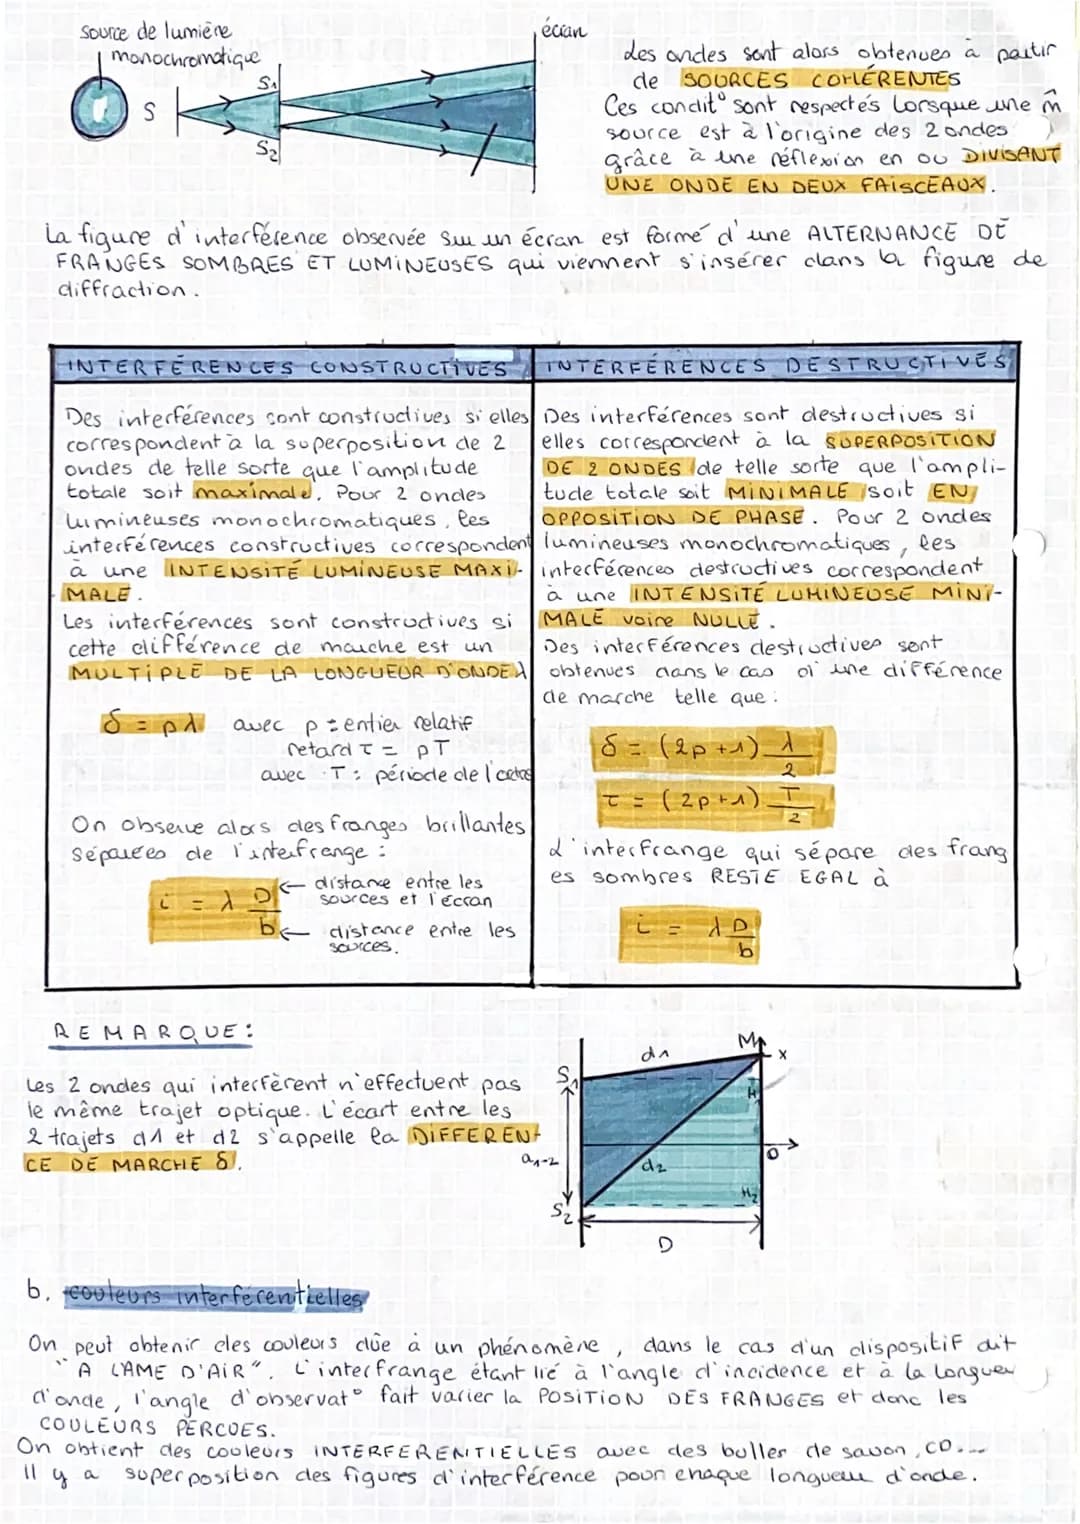 source de lumière
monochromatique
écran
S
S1
S2
Les ondes sont alors obtenues à partir
de SOURCES COHÉRENTES
Ces condit° sont respectés lorsque une m̂
source est à l'origine des 2 ondes
grâce à une réflexion en ou DIVISANT
UNE ONDE EN DEUX FAISCEAUX.
La figure d'interférence observée sur un écran est formé d'une ALTERNANCE DE
FRANGES SOMBRES ET LUMINEUSES qui viennent s'insérer dans la figure de
diffraction.
INTERFÉRENCES CONSTRUCTIVES
Des interférences sont constructives si elles
correspondent à la superposition de 2
ondes de telle sorte que l'amplitude
totale soit maximale. Pour 2 ondes
lumineuses monochromatiques, les
interférences constructives correspondent
à une INTENSITÉ LUMINEUSE MAXI-
MALE.
Les interférences sont constructives si
cette différence de marche est un
MULTIPLE DE LA LONGUEUR D'ONDE λ
δ = pλ avec p : entier relatif
retard τ = pT
avec T : période de l'
On observe alors des franges brillantes
séparées de l'interfrange :
i = λ D/b
← distance entre les
sources et l'écran
← distance entre les
sources.
INTERFÉRENCES DESTRUCTIVES
Des interférences sont destructives si
elles correspondent à la SUPERPOSITION
DE 2 ONDES de telle sorte que l'ampli-
tude totale soit MINIMALE soit EN
OPPOSITION DE PHASE. Pour 2 ondes
lumineuses monochromatiques, les
interférences destructives correspondent
à une INTENSITÉ LUMINEUSE MINI-
MALE voire NULLE.
Des interférences destructives sont
obtenues dans le cas d'une différence
de marche telle que :
δ = (2p+1) λ/2
τ = (2p+1) T/2
L'interfrange qui sépare des frang
es sombres RESTE EGAL à
i = λD/b
REMARQUE :
Les 2 ondes qui interfèrent n'effectuent pas
le même trajet optique. L'écart entre les
2 trajets d1 et d2 s'appelle la DIFFEREN-
CE DE MARCHE δ.
d1
M
x
S1
H1
a1-2
O
d2
H2
S2
D
b. couleurs interférentielles
On peut obtenir des couleurs dûe à un phénomène, dans le cas d'un dispositif dit
"A LAME D'AIR". L'interfrange étant lié à l'angle d'incidence et à la longueur
d'onde, l'angle d'observat° fait varier la POSITION DES FRANGES et donc les
COULEURS PERCUES.
On obtient des couleurs INTERFERENTIELLES avec des buller de savon, CD...
Il y a superposition des figures d'interférence pour chaque longueur d'onde.